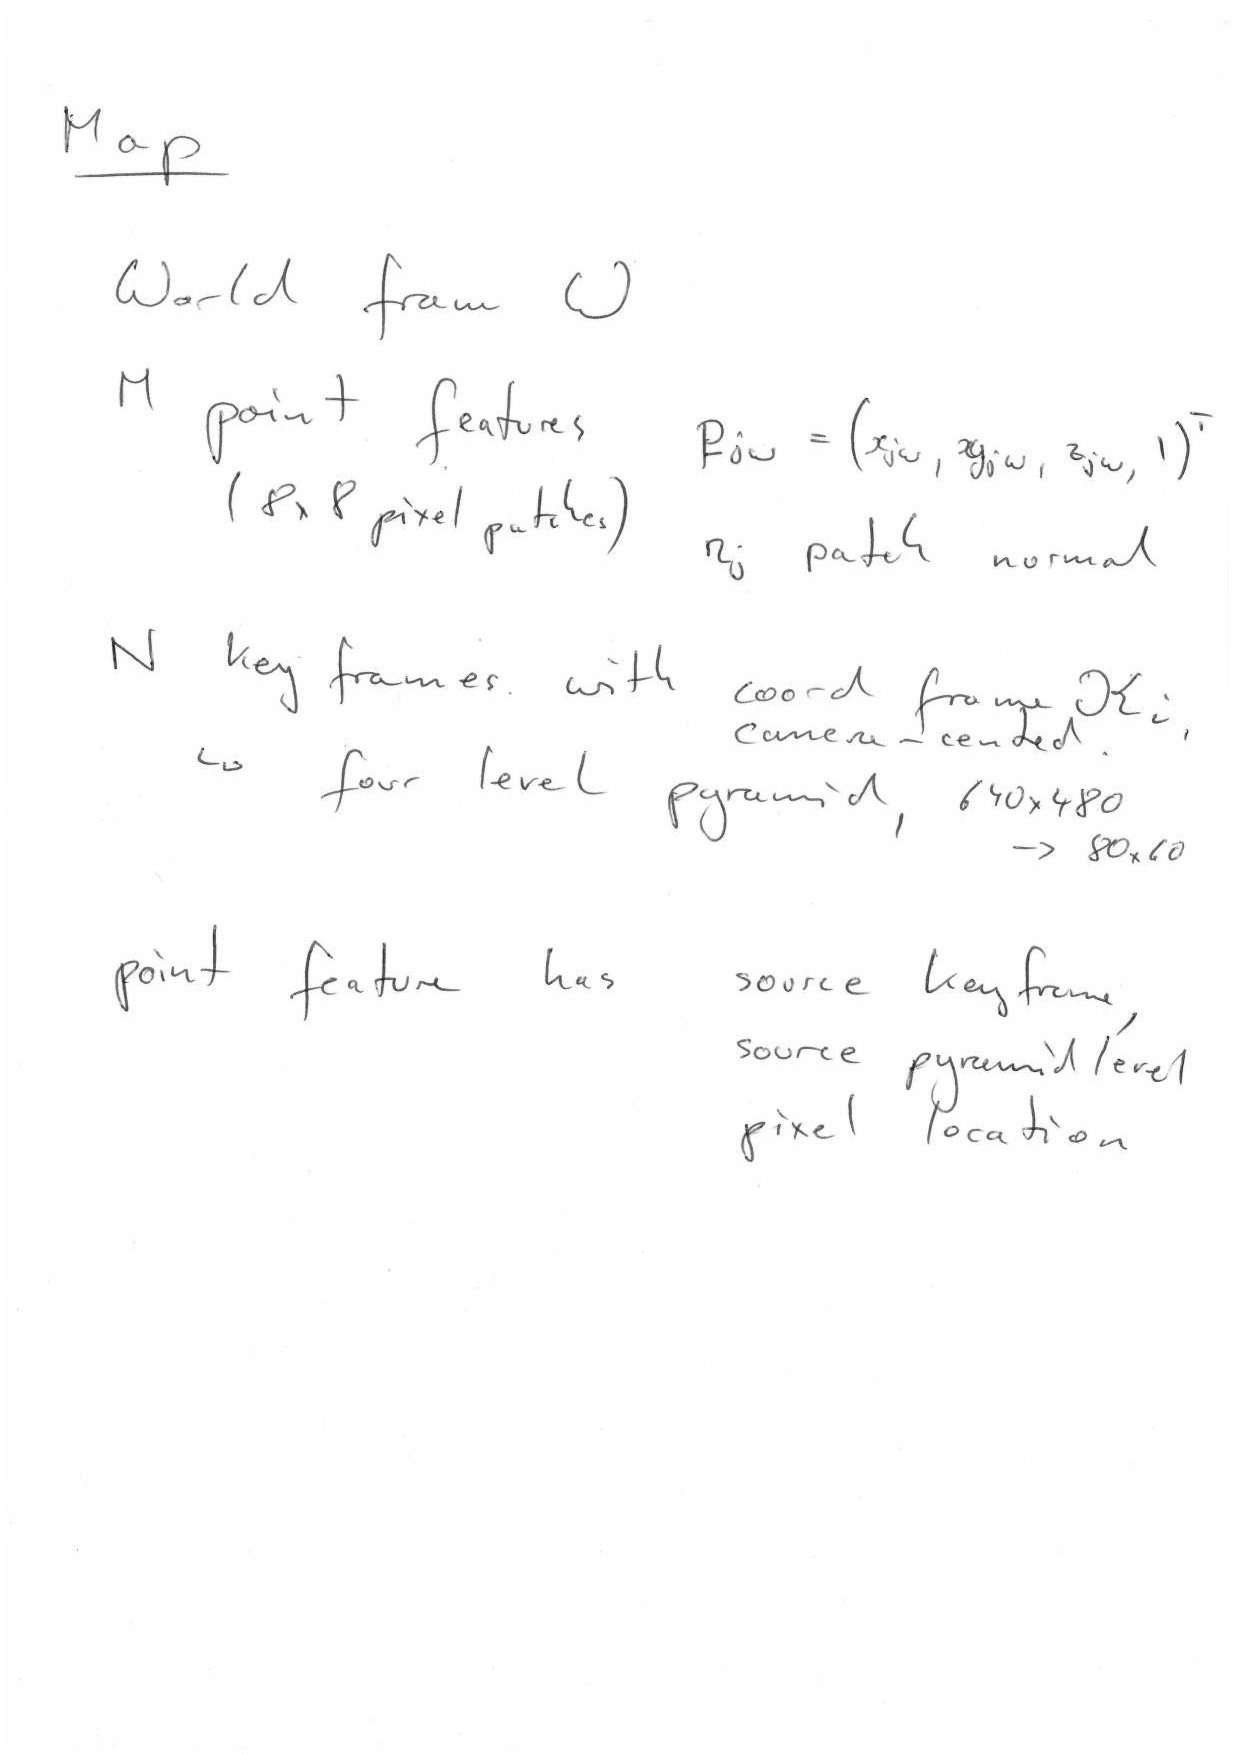 Map
World fram W
M point features
(8x8 pixel patches)
Pjw = (xjw, yjw, zjw, 1)ᵀ
nj patch normal
N key frames. with coord frame Ki,
camera-cented.
↳ four level pyramid, 640x480
→ 80x60
point feature has source keyframe,
source pyramid level
pixel location